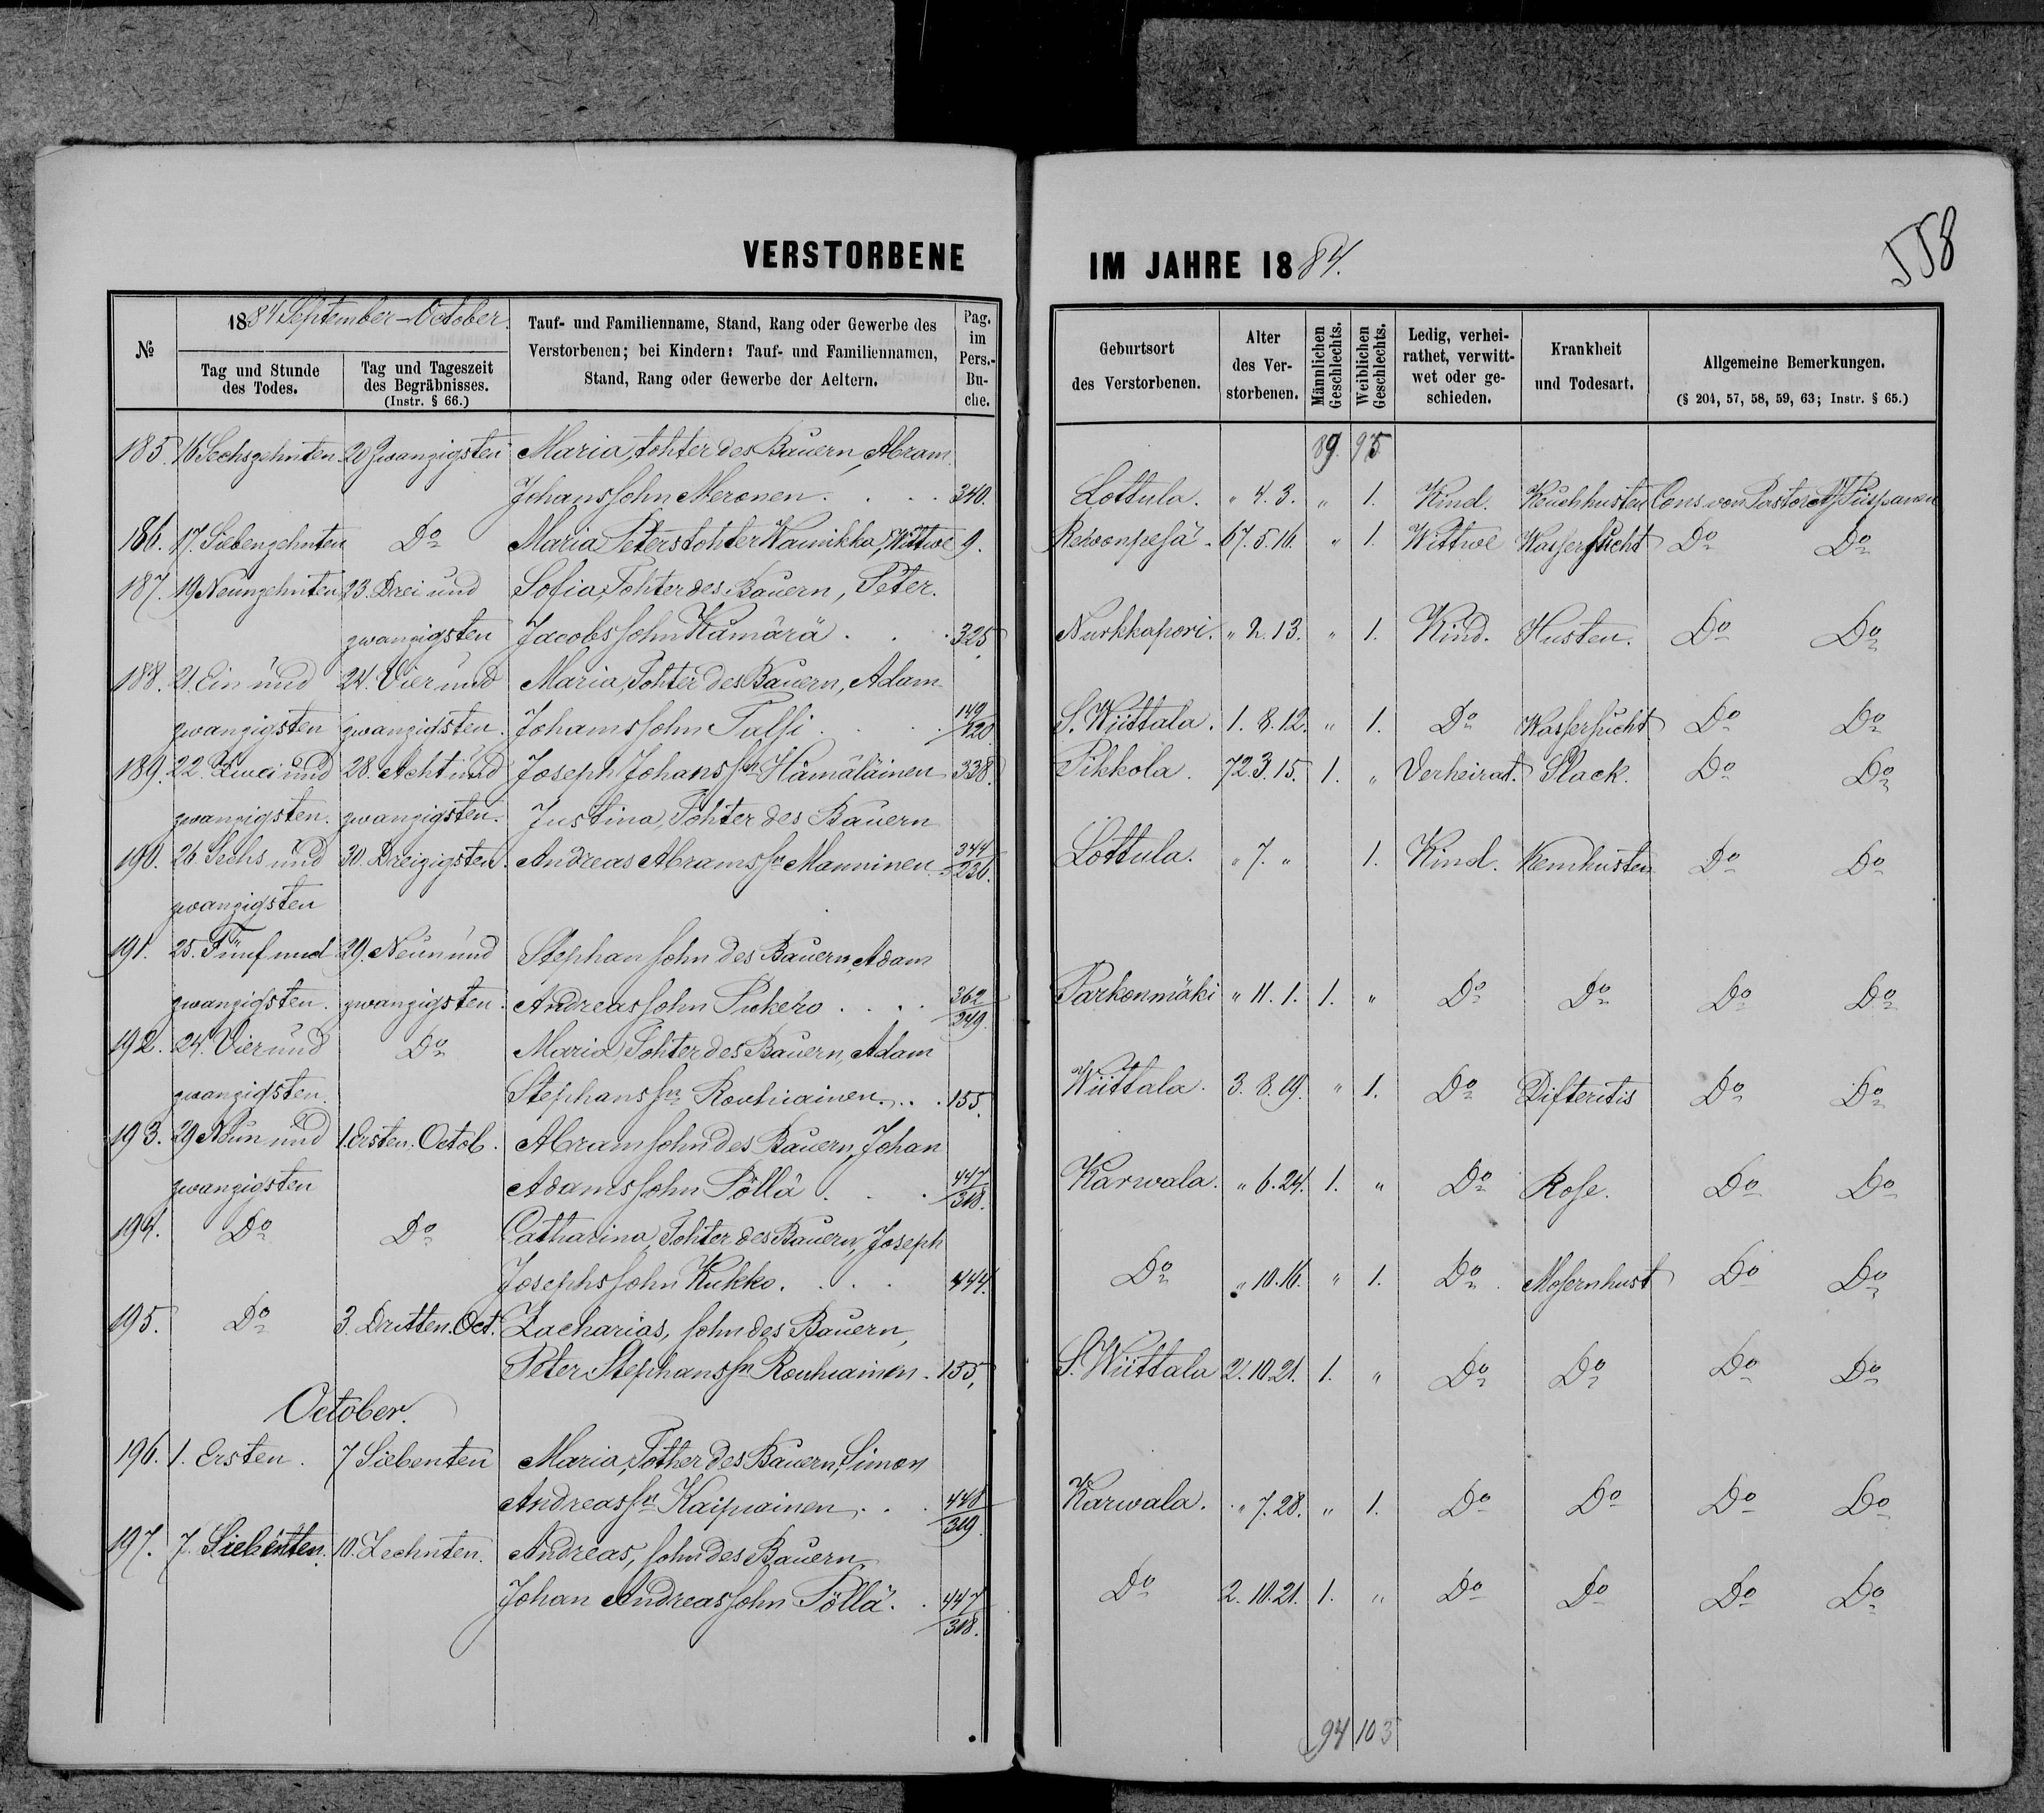 VERSTORBENE
IM JAHRE 1884.
558
№
1884 September-October.
Tag und Stunde des Todes.
Tag und Tageszeit des Begräbnisses. (Instr. § 66.)
Tauf- und Familienname, Stand, Rang oder Gewerbe des Verstorbenen; bei Kindern: Tauf- und Familiennamen, Stand, Rang oder Gewerbe der Aeltern.
Pag. im Pers.-Bu-che.
Geburtsort des Verstorbenen.
Alter des Ver-storbenen.
Männlichen Geschlechts.
Weiblichen Geschlechts.
Ledig, verhei-rathet, verwitt-wet oder ge-schieden.
Krankheit und Todesart.
Allgemeine Bemerkungen.
(§ 204, 57, 58, 59, 63; Instr. § 65.)
185. 16 Sechszehnten 20 Zwanzigsten Maria, tohter des Bauern, Abram 89. 95
Johanssohn Meronen. 340. Lottula. " 4. 3. " 1. Kind. Keuchhusten Cons. von Pastor
186. 17. Siebenzehnten Do Maria Peterstohter Wainikka, Wittwe 9. 67. 5. 16. " 1. Wittwe Wassersucht Do Do
187. 19 Neunzehnten 23. Drei und Sofia, Tohter des Bauern, Peter
zwanzigsten Jacobssohn Kämärä 325 Nurkkapori. " 2. 13. " 1. Kind. Husten. Do Do
188. 21. Ein und 24. Vier und Maria, Tohter des Bauern, Adam
zwanzigsten zwanzigsten. Johanssohn Talsi 149/120 S. Wiittala. 1. 8. 12. " 1. Do Wassersucht Do Do
189. 22. Zwei und 28. Acht und Joseph Johanssn Hämäläinen 338. Pikkola. 72. 3. 15. 1. " Verheirat. Slack. Do Do
zwanzigsten. zwanzigsten. Justina, Tohter des Bauern
190. 26. Sechs und 30. Dreizigsten. Andreas Abramssn Manninen 344/236. Lottula. " 7. " 1. Kind. Do Do
zwanzigsten
191. 25. Fünf und 29. Neun und Stephan sohn des Bauern, Adam
zwanzigsten. zwanzigsten. Andreassohn Pukero 362/249. Parkonmäki " 11. 1. 1. " Do Do Do Do
192. 24. Vier und Do Maria, Tohter des Bauern, Adam
zwanzigsten. Stephanssn Rouhiainen. 155. Wiittala. 3. 8. 19. " 1. Do Difteritis Do Do
193. 29 Neun und 1. Ersten. Octob. Abram sohn des Bauern, Johan
zwanzigsten Adamssohn Pöllä 447/318. Karwala. " 6. 24. 1. " Do Rose. Do Do
194. Do Do Catharina, Tohter des Bauern, Joseph
Josephssohn Kukko. 444. Do " 10. 16. " 1. Do Do Do
195. Do 3. Dritten. Oct. Zacharias, sohn des Bauern,
Peter Stephanssn Rouhiainen. 155, S. Wiittala 2. 10. 21. 1. " Do Do Do Do
October.
196. 1. Ersten. 7 Siebenten Maria, Tother des Bauern, Simon
Andreassn Kaipiainen. 448/319. Karwala. " 7. 28. " 1. Do Do Do Do
197. 7. Siebenten. 10. Zechnten. Andreas, sohn des Bauern
Johan Andreassohn Pöllä. 447/318. Do 2. 10. 21. 1. " Do Do Do Do
94 103